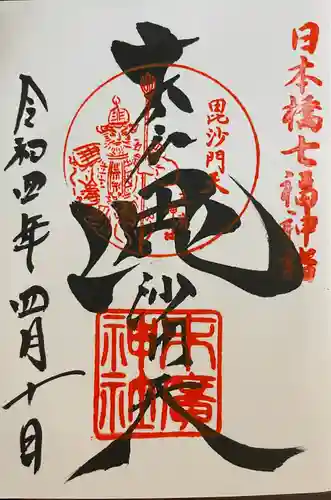 日本橋七福神詣
奉拝
毘沙門天
毘沙門天
末廣神社
令和四年四月十日